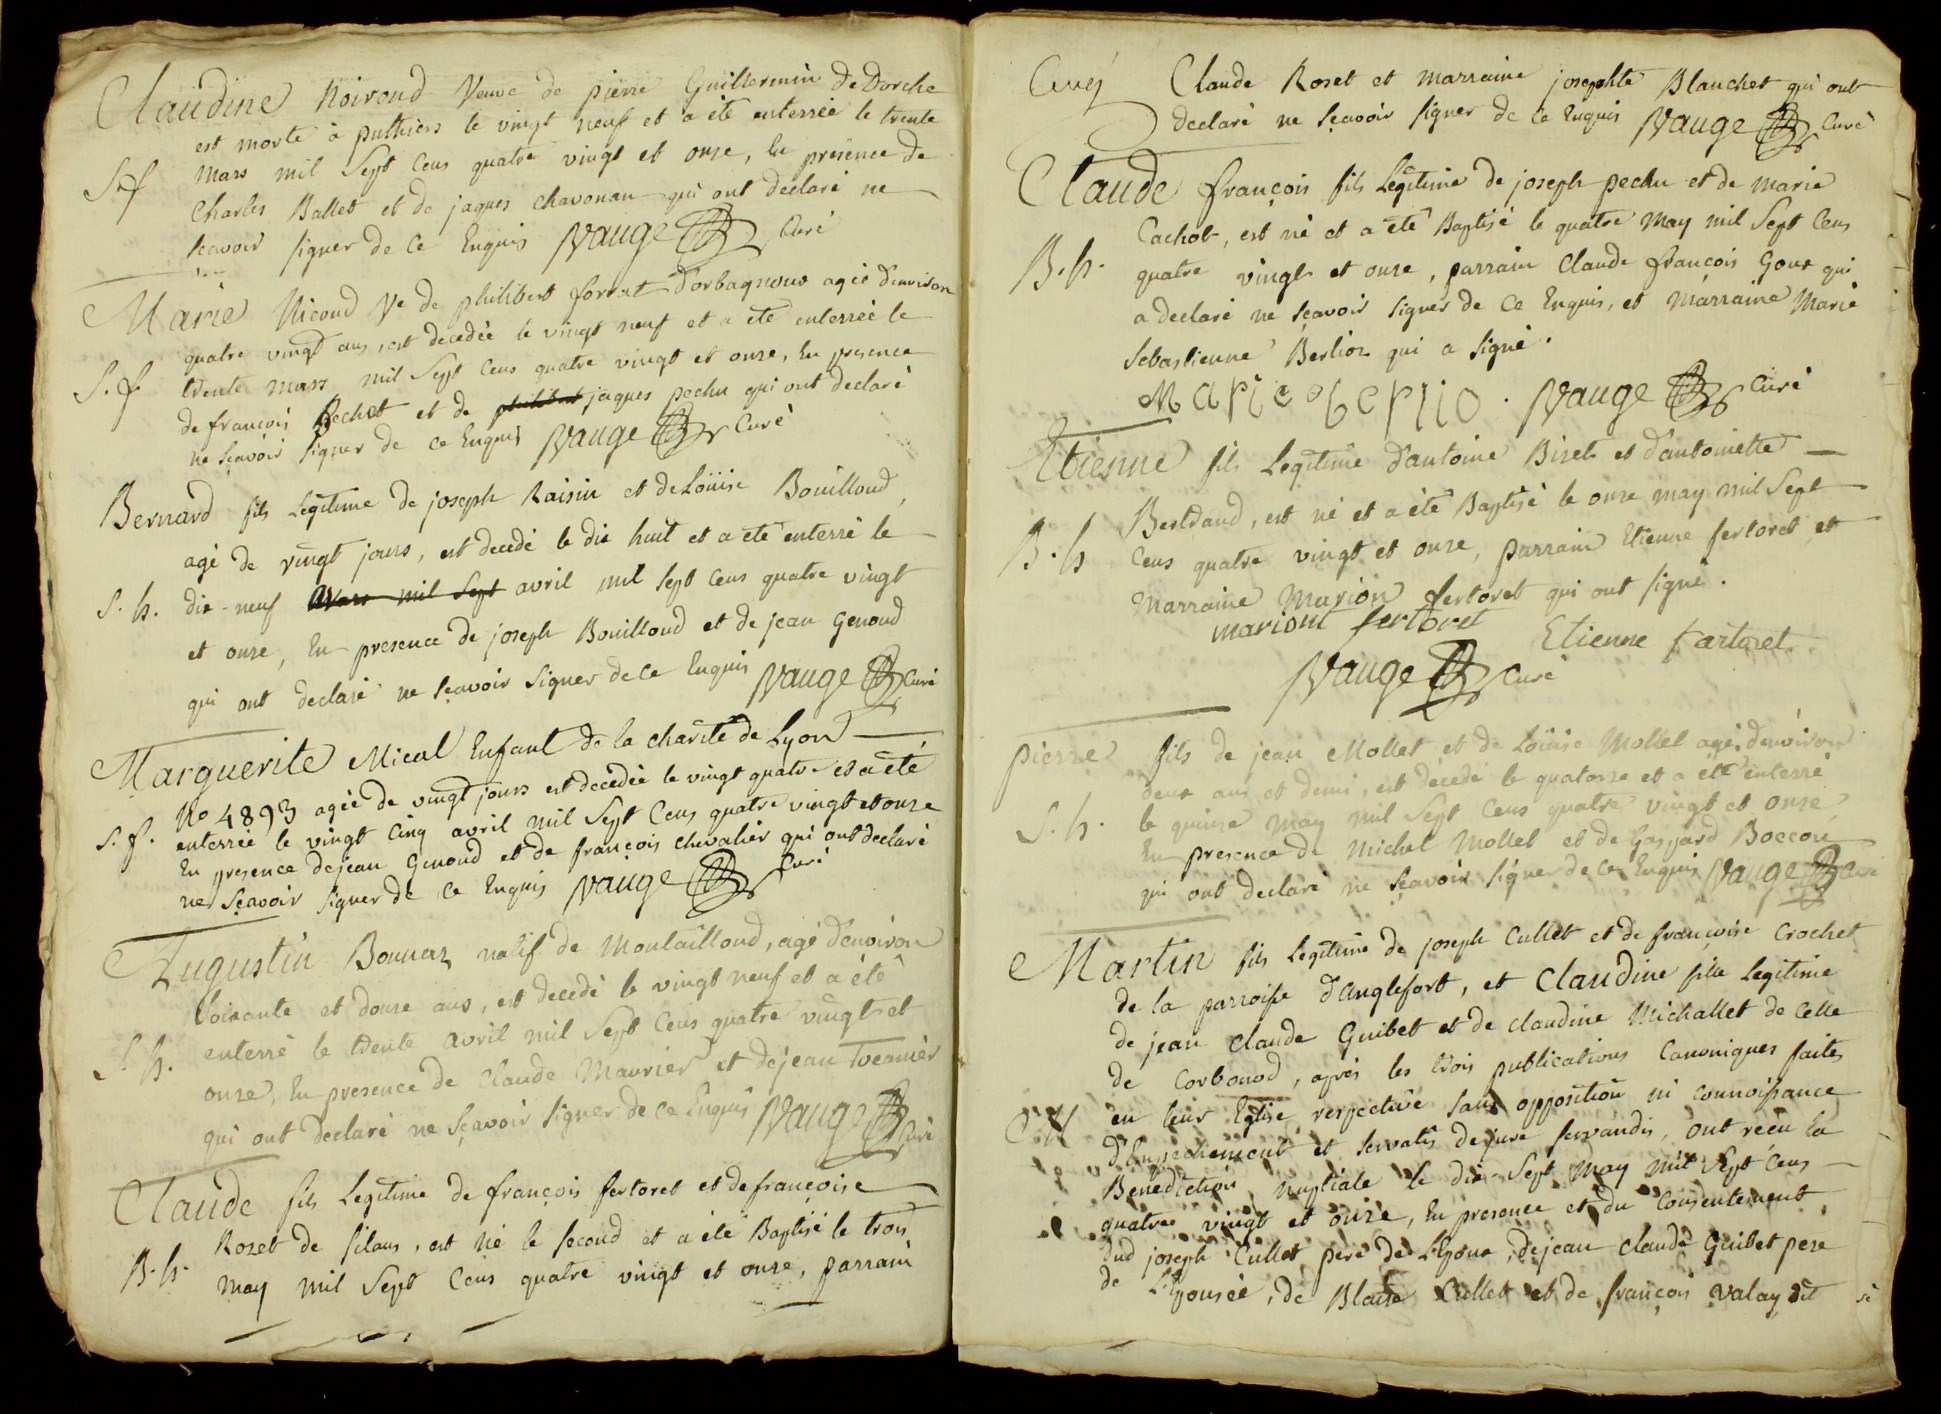 Claudine Noiroud Veuve de pierre Guillermin de Dorche
est morte à puthiers le vingt neuf et a été enterrée le trente
S.f mars mil Sept Cens quatre vingt et onze, En presence de
Charles Ballet et de jaques chavonan qui ont declaré ne
scavoir signer de ce Enquis Vauge Curé
Marie Nicoud Ve de philibert forrat D'orbagnoux agée d'environ
quatre vingt ans, est decedée le vingt neuf et a été enterrée le
S.f trente mars mil Sept Cens quatre vingt et onze, En presence
de francois Bechet et de philibert jaques pechu qui ont declaré
ne sçavoir signer de ce Enquis Vauge Curé
Bernard fils Legitime de joseph Raisin et de Loüise Bouilloud,
agé de vingt jours, est decedé le dix huit et a été enterré le
S.h. dix-neuf Mars mil Sept avril mil sept Cens quatre vingt
et onze, En presence de joseph Bouilloud et de jean Genoud
qui ont declaré ne sçavoir signer de ce Enquis Vauge Curé
Marguerite Mical Enfant de la charité de Lyon
No 4893 agée de vingt jours est decedée le vingt quatre et a été
S.f. enterrée le vingt Cinq avril mil Sept Cens quatre vingt et onze
En presence de jean Genoud et de françois chevalier qui ont declaré
ne sçavoir signer de ce Enquis Vauge Curé
Augustin Bonnaz natif de Montailloud, agé d'environ
soixante et douze ans, est decedé le vingt neuf et a été
S.h. enterré le trente avril mil Sept Cens quatre vingt et
onze, En presence de Claude Maurier et de jean Tvernier
qui ont declaré ne sçavoir signer de ce Enquis Vauge Curé
Claude fils Legitime de françois fertoret et de françoise
Rozet de silans, est né le second et a été Baptisé le trois
B.h. may mil Sept Cens quatre vingt et onze, parrain
Claude Roset et marraine josephte Blanchet qui ont
declaré ne sçavoir signer de ce Enquis Vauge Curé
Claude françois fils Legitime de joseph pechu et de marie
Cachot, est né et a été Baptisé le quatre May mil Sept Cens
B.h. quatre vingt et onze, parrain Claude françois Goux qui
a declaré ne sçavoir signer de ce Enquis, et Marraine Marie
Sebastienne Berlioz qui a signé.
Marie Vauge Curé
Etienne fils Legitime d'antoine Bizet et d'antoinette
Bertrand, est né et a été Baptisé le onze may mil Sept
B.h Cens quatre vingt et onze, parrain Etienne fertoret et
Marraine Marion fertoret qui ont signé.
mariont fertoret Etienne fartoret
Vauge Curé
pierre fils de jean Mollet et de Loüise Mollet agé d'environ
deux ans et demi, est decedé le quatorze et a été enterré
S.h. le quinze may mil Sept Cens quatre vingt et onze,
En presence de Michel Mollet et de Gaspard Boccon
qui ont declaré ne sçavoir signer de ce Enquis Vauge Curé
Martin fils Legitime de joseph Cullet et de françoise Crochet
de la parroisse d'Anglefort, et Claudine fille Legitime
de jean Claude Guibet et de claudine Michallet de Celle
de Corbonod, après les trois publications Canoniques faites
en leur Eglise respective sans opposition ni connoissance
d'Empechement et servatis de jure servandis, ont reçu la
Benediction nuptiale le dix-Sept May mil Sept Cens
quatre vingt et onze, En presence et du Consentement
dud joseph Cullet pere de L'Epoux, de jean claude Guibet pere
de L'Epousée, de Blaise Cullet et de françois Valay dit